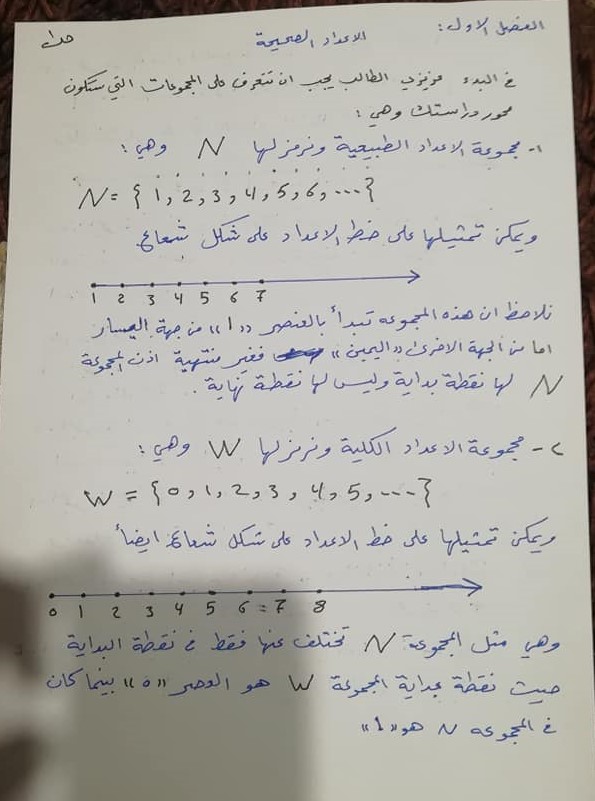 الفصل الاول: الاعداد الصحيحة
في البدء عزيزي الطالب يجب ان تتعرف على المجموعات التي ستكون
محور دراستك وهي:
١- مجموعة الاعداد الطبيعية ونرمز لها N وهي:
N = { 1, 2, 3, 4, 5, 6, ... }
ويمكن تمثيلها على خط الاعداد على شكل شعاع
1 2 3 4 5 6 7
نلاحظ ان هذه المجموعه تبدأ بالعنصر «1» من جهة اليسار
اما من الجهة الاخرى «اليمين» فغير منتهية اذن المجموعة
N لها نقطة بداية وليس لها نقطة نهاية.
٢- مجموعة الاعداد الكلية ونرمز لها W وهي:
W = { 0, 1, 2, 3, 4, 5, ... }
ويمكن تمثيلها على خط الاعداد على شكل شعاع ايضاً
0 1 2 3 4 5 6 7 8
وهي مثل المجموعة N تختلف عنها فقط في نقطة البداية
حيث نقطة بداية المجموعة W هو العصر «0» بينما كان
في المجموعه N هو «1»